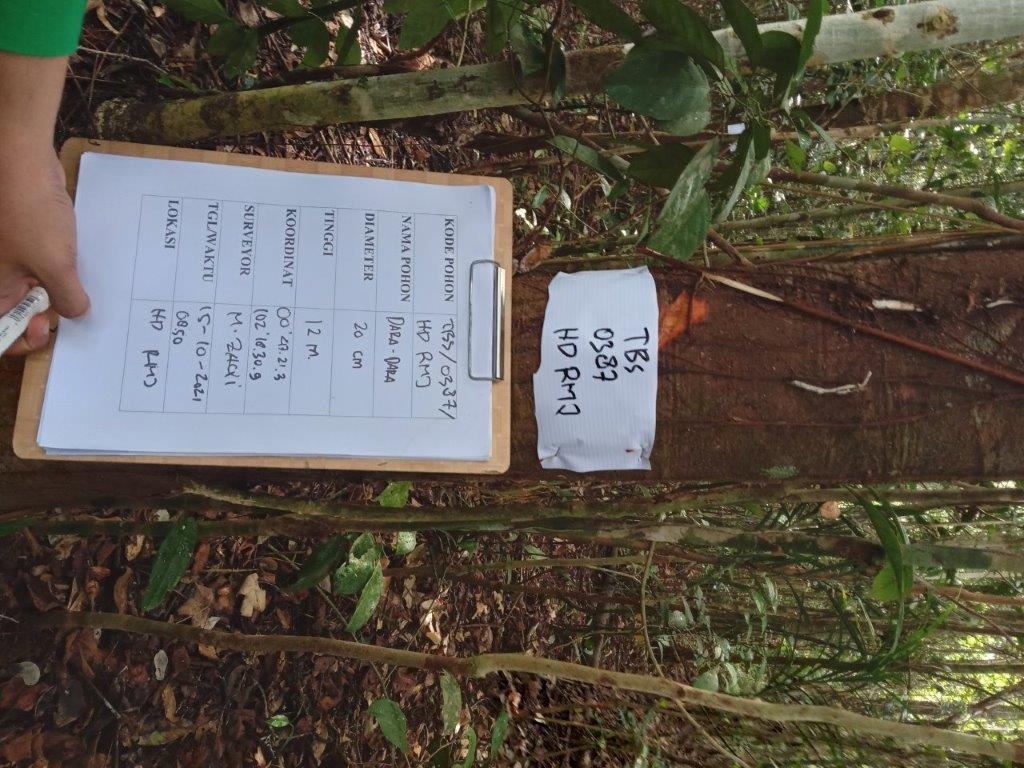 TBS
0387
HD RMJ
KODE POHON TBS/0387/
HD RMJ
NAMA POHON DARA-DARA
DIAMETER 20 cm
TINGGI 12 M.
KOORDINAT 00°47.21.3
102°18.30.9
SURVEYOR M. ZACKI
TGL/WAKTU 15-10-2021
0850
LOKASI HD RMJ